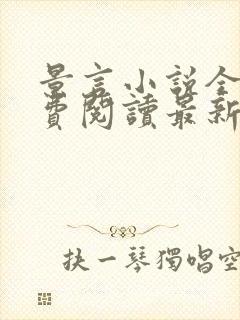 景言小說全
費閱讀最新
抉一琴獨唱空